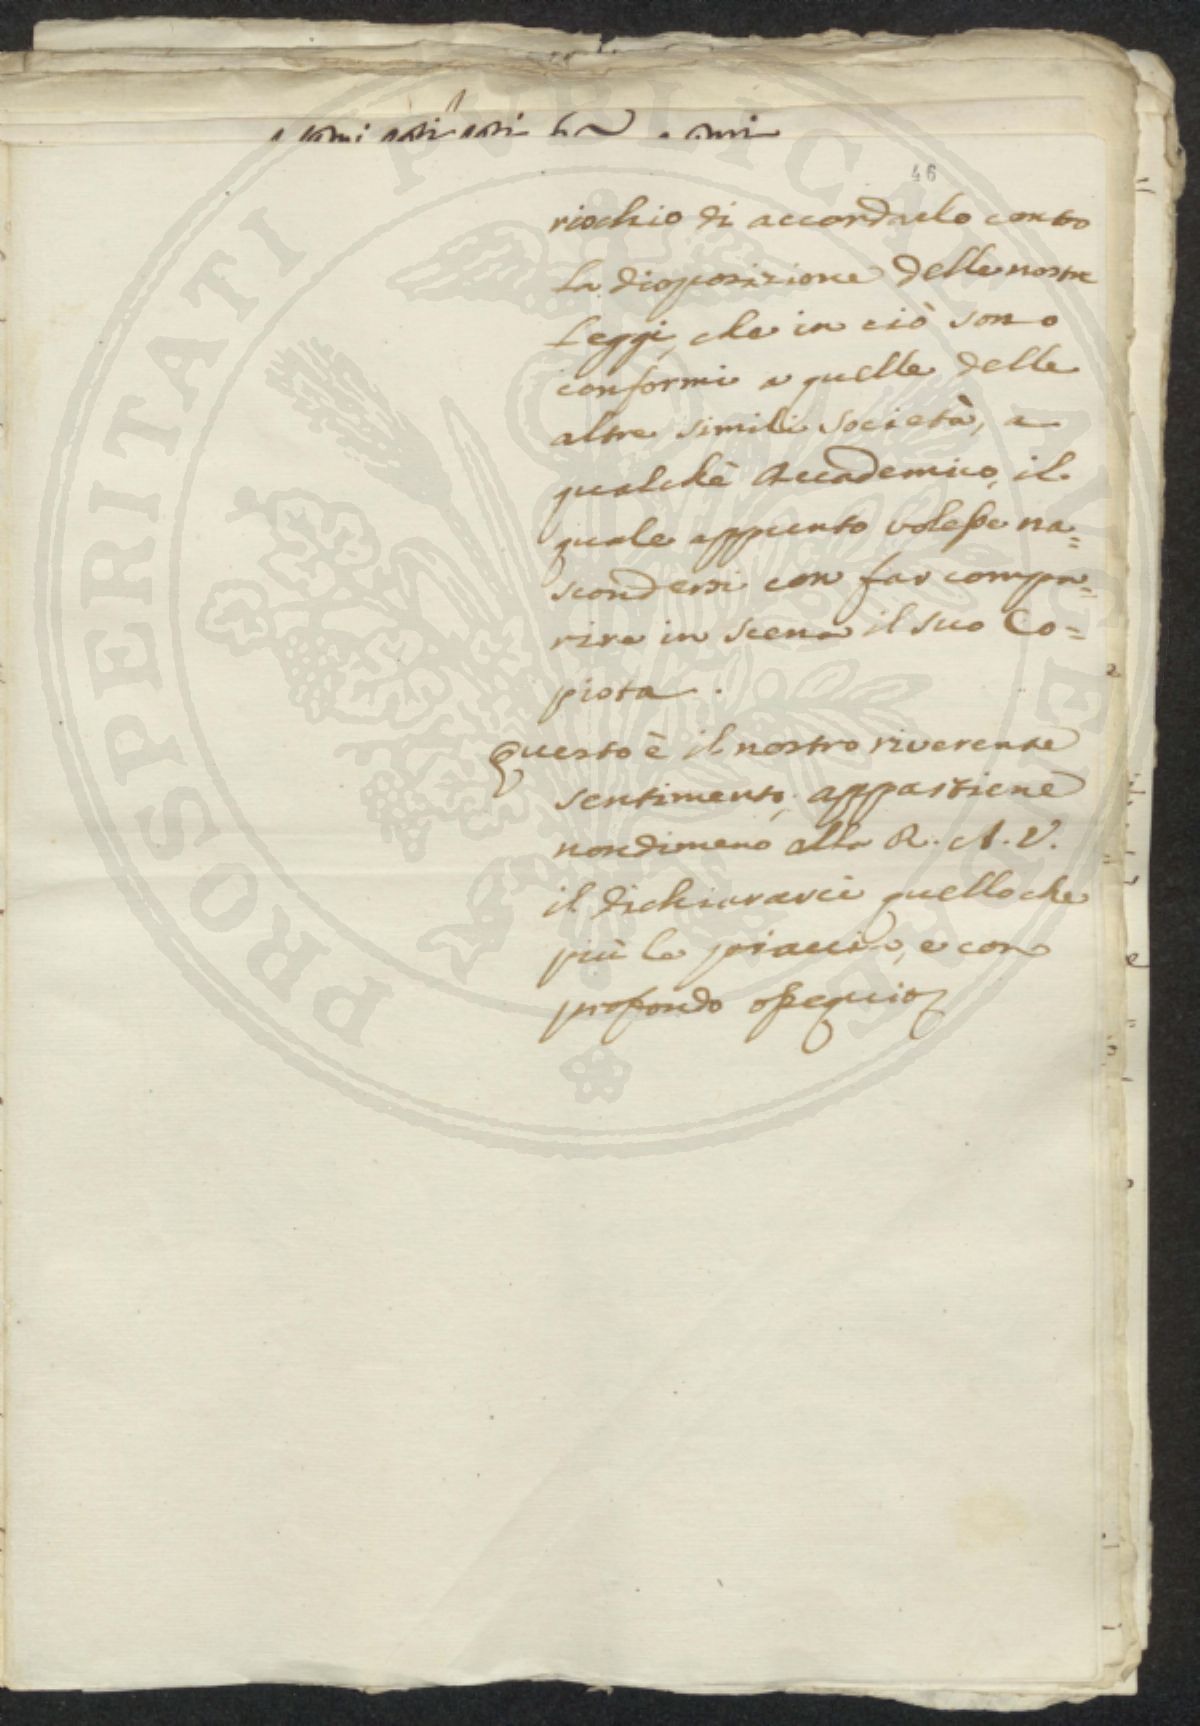 PROSPERITATI PUBLICAE AUGENDAE
46
rischio di accordarlo contro
la disposizione delle nostre
Leggi, che in ciò sono
conformi a quelle delle
altre simili società, a
qualche Accademico, il
quale appunto volesse na=
scondersi con far compa=
rire in scena il suo Co=
pista.
Questo è il nostro riverente
sentimento, appartiene
nondimeno alla R. A. V.
il dichiararci quello che
più le piaccia, e con
profondo ossequio